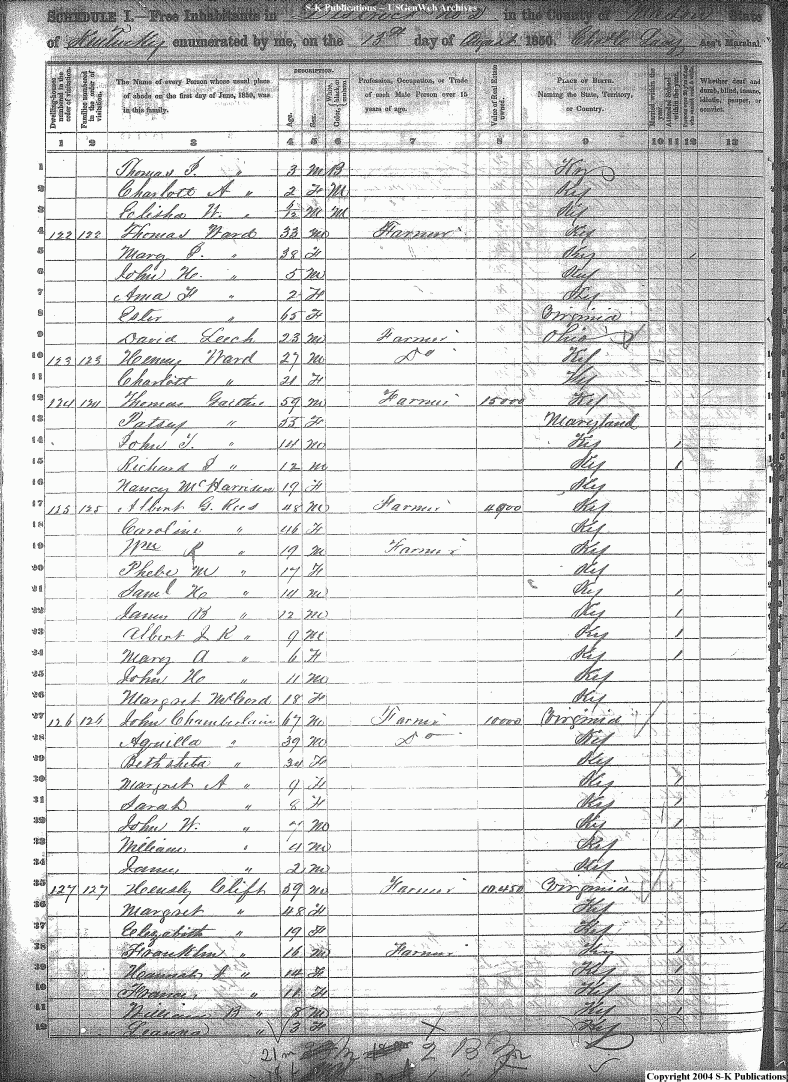 S-K Publications – USGenWeb Archives
SCHEDULE I.—Free Inhabitants in in the County of State
of Kentucky enumerated by me, on the 13th day of August 1850. Ass't Marshal.
Dwelling-houses numbered in the order of visitation.
Families numbered in the order of visitation.
The Name of every Person whose usual place of abode on the first day of June, 1850, was in this family.
DESCRIPTION.
Age.
Sex.
Color, White, black, or mulatto.
Profession, Occupation, or Trade of each Male Person over 15 years of age.
Value of Real Estate owned.
PLACE OF BIRTH. Naming the State, Territory, or Country.
Married within the year.
Attended School within the year.
Whether deaf and dumb, blind, insane, idiotic, pauper, or convict.
1 2 3 4 5 6 7 8 9 10 11 12 13
1 Thomas P. " 3 M B Ky
2 Charlott A " 2 F M Ky
3 Elisha W. " M M Ky
4 122 122 Thomas Ward 33 M Farmer Ky
5 Mary " 38 F " Ky
6 John H. " 5 M Ky
7 Ama F " 2 F Ky
8 Ester " 65 F Virginia
9 David Leech 23 M Farmer Ohio
10 123 123 Henry Ward 27 M Do Ky
11 Charlott " 21 F Ky
12 124 124 Thomas 59 M Farmer 15000 Ky
13 Patsy " 55 F Maryland
14 John T. " 14 M Ky 1
15 Richard " 12 M Ky 1
16 Nancy McHarrison 19 F Ky
17 125 125 Albert G. Rees 48 M Farmer 4900 Ky
18 Caroline " 46 F Ky
19 Wm R " 19 M Farmer Ky
20 Phebe M " 17 F Ky
21 Saml H " 14 M Ky 1
22 James B " 12 M Ky 1
23 Albert J K " 9 M Ky 1
24 Mary A " 6 F Ky 1
25 John H " 11 M Ky
26 Margret McCord 18 F Ky
27 126 126 John Chamberlain 67 M Farmer 10000 Virginia
28 Aquilla " 39 M Do Ky
29 Bethsheba " 34 F Ky
30 Margret A " 9 F Ky 1
31 Sarah " 8 F Ky 1
32 John W. " 7 M Ky 1
33 William " 4 M Ky
34 James " 2 M Ky
35 127 127 Clift 59 M Farmer 10,450 Virginia
36 Margret " 48 F Ky
37 Elizabeth " 19 F Ky
38 Franklin " 16 M Farmer Ky 1
39 Hannah " 14 F Ky 1
40 Francis " 11 F Ky 1
41 William B " 8 M Ky 1
42 Leanna " 3 F Ky
21 m 2 B
Copyright 2004 S-K Publications